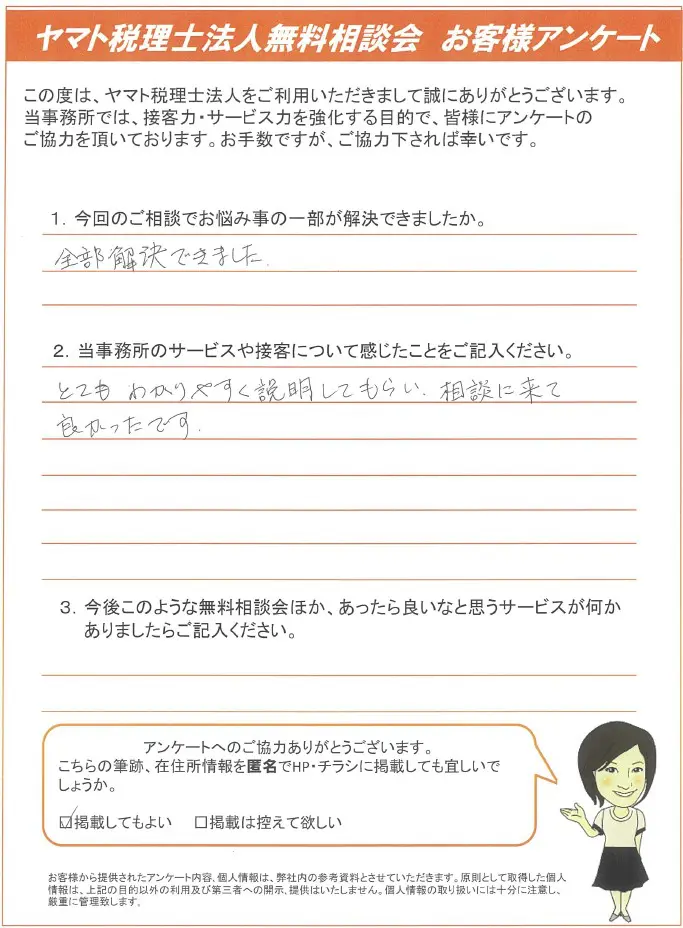 ヤマト税理士法人無料相談会 お客様アンケート
この度は、ヤマト税理士法人をご利用いただきまして誠にありがとうございます。
当事務所では、接客力・サービス力を強化する目的で、皆様にアンケートの
ご協力を頂いております。お手数ですが、ご協力下されば幸いです。
1. 今回のご相談でお悩み事の一部が解決できましたか。
全部解決できました.
2. 当事務所のサービスや接客について感じたことをご記入ください。
とても わかりやすく説明してもらい. 相談に来て
良かったです.
3. 今後このような無料相談会ほか、あったら良いなと思うサービスが何か
ありましたらご記入ください。
アンケートへのご協力ありがとうございます。
こちらの筆跡、在住所情報を匿名でHP・チラシに掲載しても宜しいで
しょうか。
☑掲載してもよい ☐掲載は控えて欲しい
お客様から提供されたアンケート内容、個人情報は、弊社内の参考資料とさせていただきます。原則として取得した個人
情報は、上記の目的以外の利用及び第三者への開示、提供はいたしません。個人情報の取り扱いには十分に注意し、
厳重に管理致します。